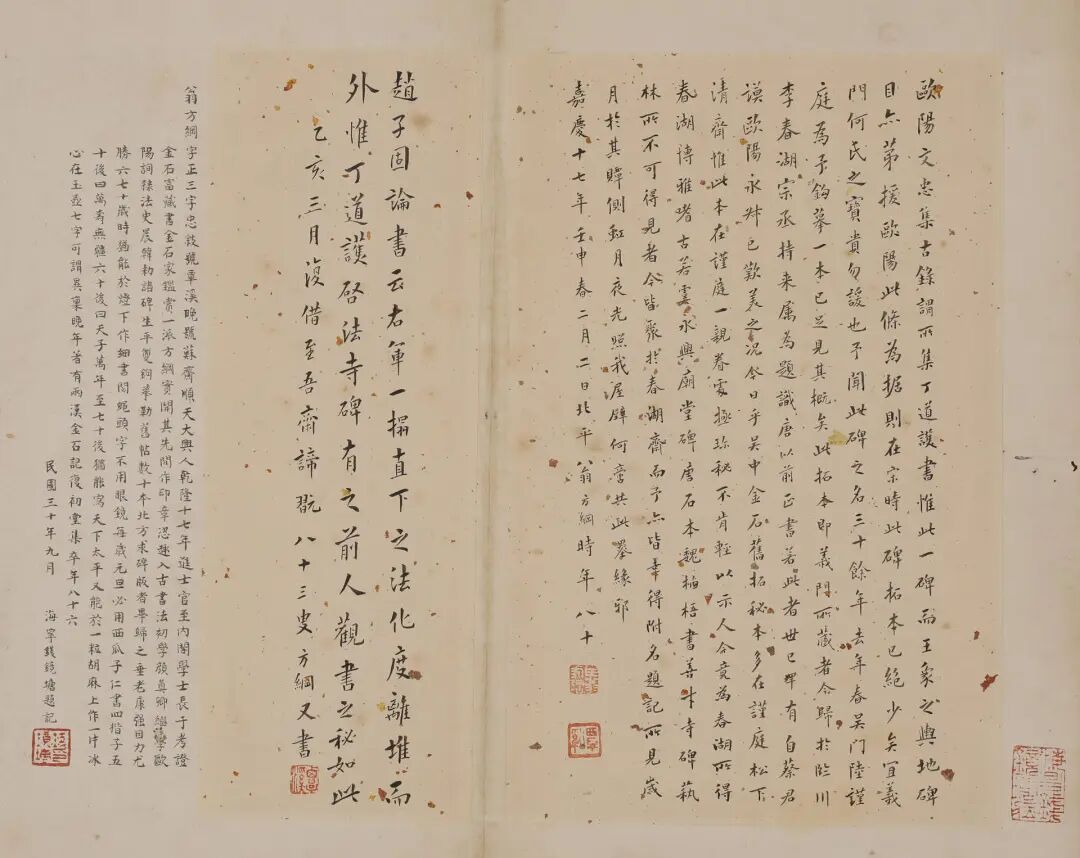 歐陽文忠集古錄謂所集丁道護書惟此一碑而王象之輿地碑
目亦第援歐陽此條為据則在宗時此碑拓本已絕少矣宜義
門何氏之寶貴勿諼也予聞此碑之名三十餘年去年春吳門陸謹
庭為予鈎摹一本已足見其概矣此拓本即義門所藏者今歸於臨川
李春湖宗丞持来属為題識唐以前正書若此者世已罕有自蔡君
謨歐陽永叔已歎美之況今日乎吳中金石舊拓秘本多在謹庭松下
清齋惟此本在謹庭一親眷處極珍秘不肯輕以示人今竟為春湖所得
春湖博雅嗜古若虞永興廟堂碑唐石本魏栖梧書善才寺碑蓺
林所不可得見者今皆聚於春湖齋而予亦皆幸得附名題記所見歲
月於其贉側虹月夜光照我渥
何啻共此墨緣邪
嘉慶十七年壬申春二月二日北平翁方綱時年八十
趙子固論書云右軍一搨直下之法化度離堆而
外惟丁道護啓法寺碑有之前人觀書之秘如此
乙亥三月復借至吾齋諦翫八十三叟方綱又書
翁方綱字正三字忠敘號覃溪晚號蘇齋順天大興人乾隆十七年進士官至內閣學士長于考證
金石富藏書金石家鑑賞一派方綱實開其先間作印章忍趣入古書法初學顏真卿繼學歐
陽詢隸法史晨韓勅諸碑生平雙鉤摹勒舊帖數十本北方求碑版者畢歸之垂老康強目力尤
勝六七十歲時猶能於燈下作細書閱蠅頭字不用眼鏡每歲元旦必用西瓜子仁書四楷子五
十後四萬壽無疆六十後四天子萬年至七十後猶能寫天下太平又能於一粒胡麻上作一片冰
心在玉壺七字可謂異稟晚年著有兩漢金石記復初堂集卒年八十六
民國三十年九月　海寧錢鏡塘題記